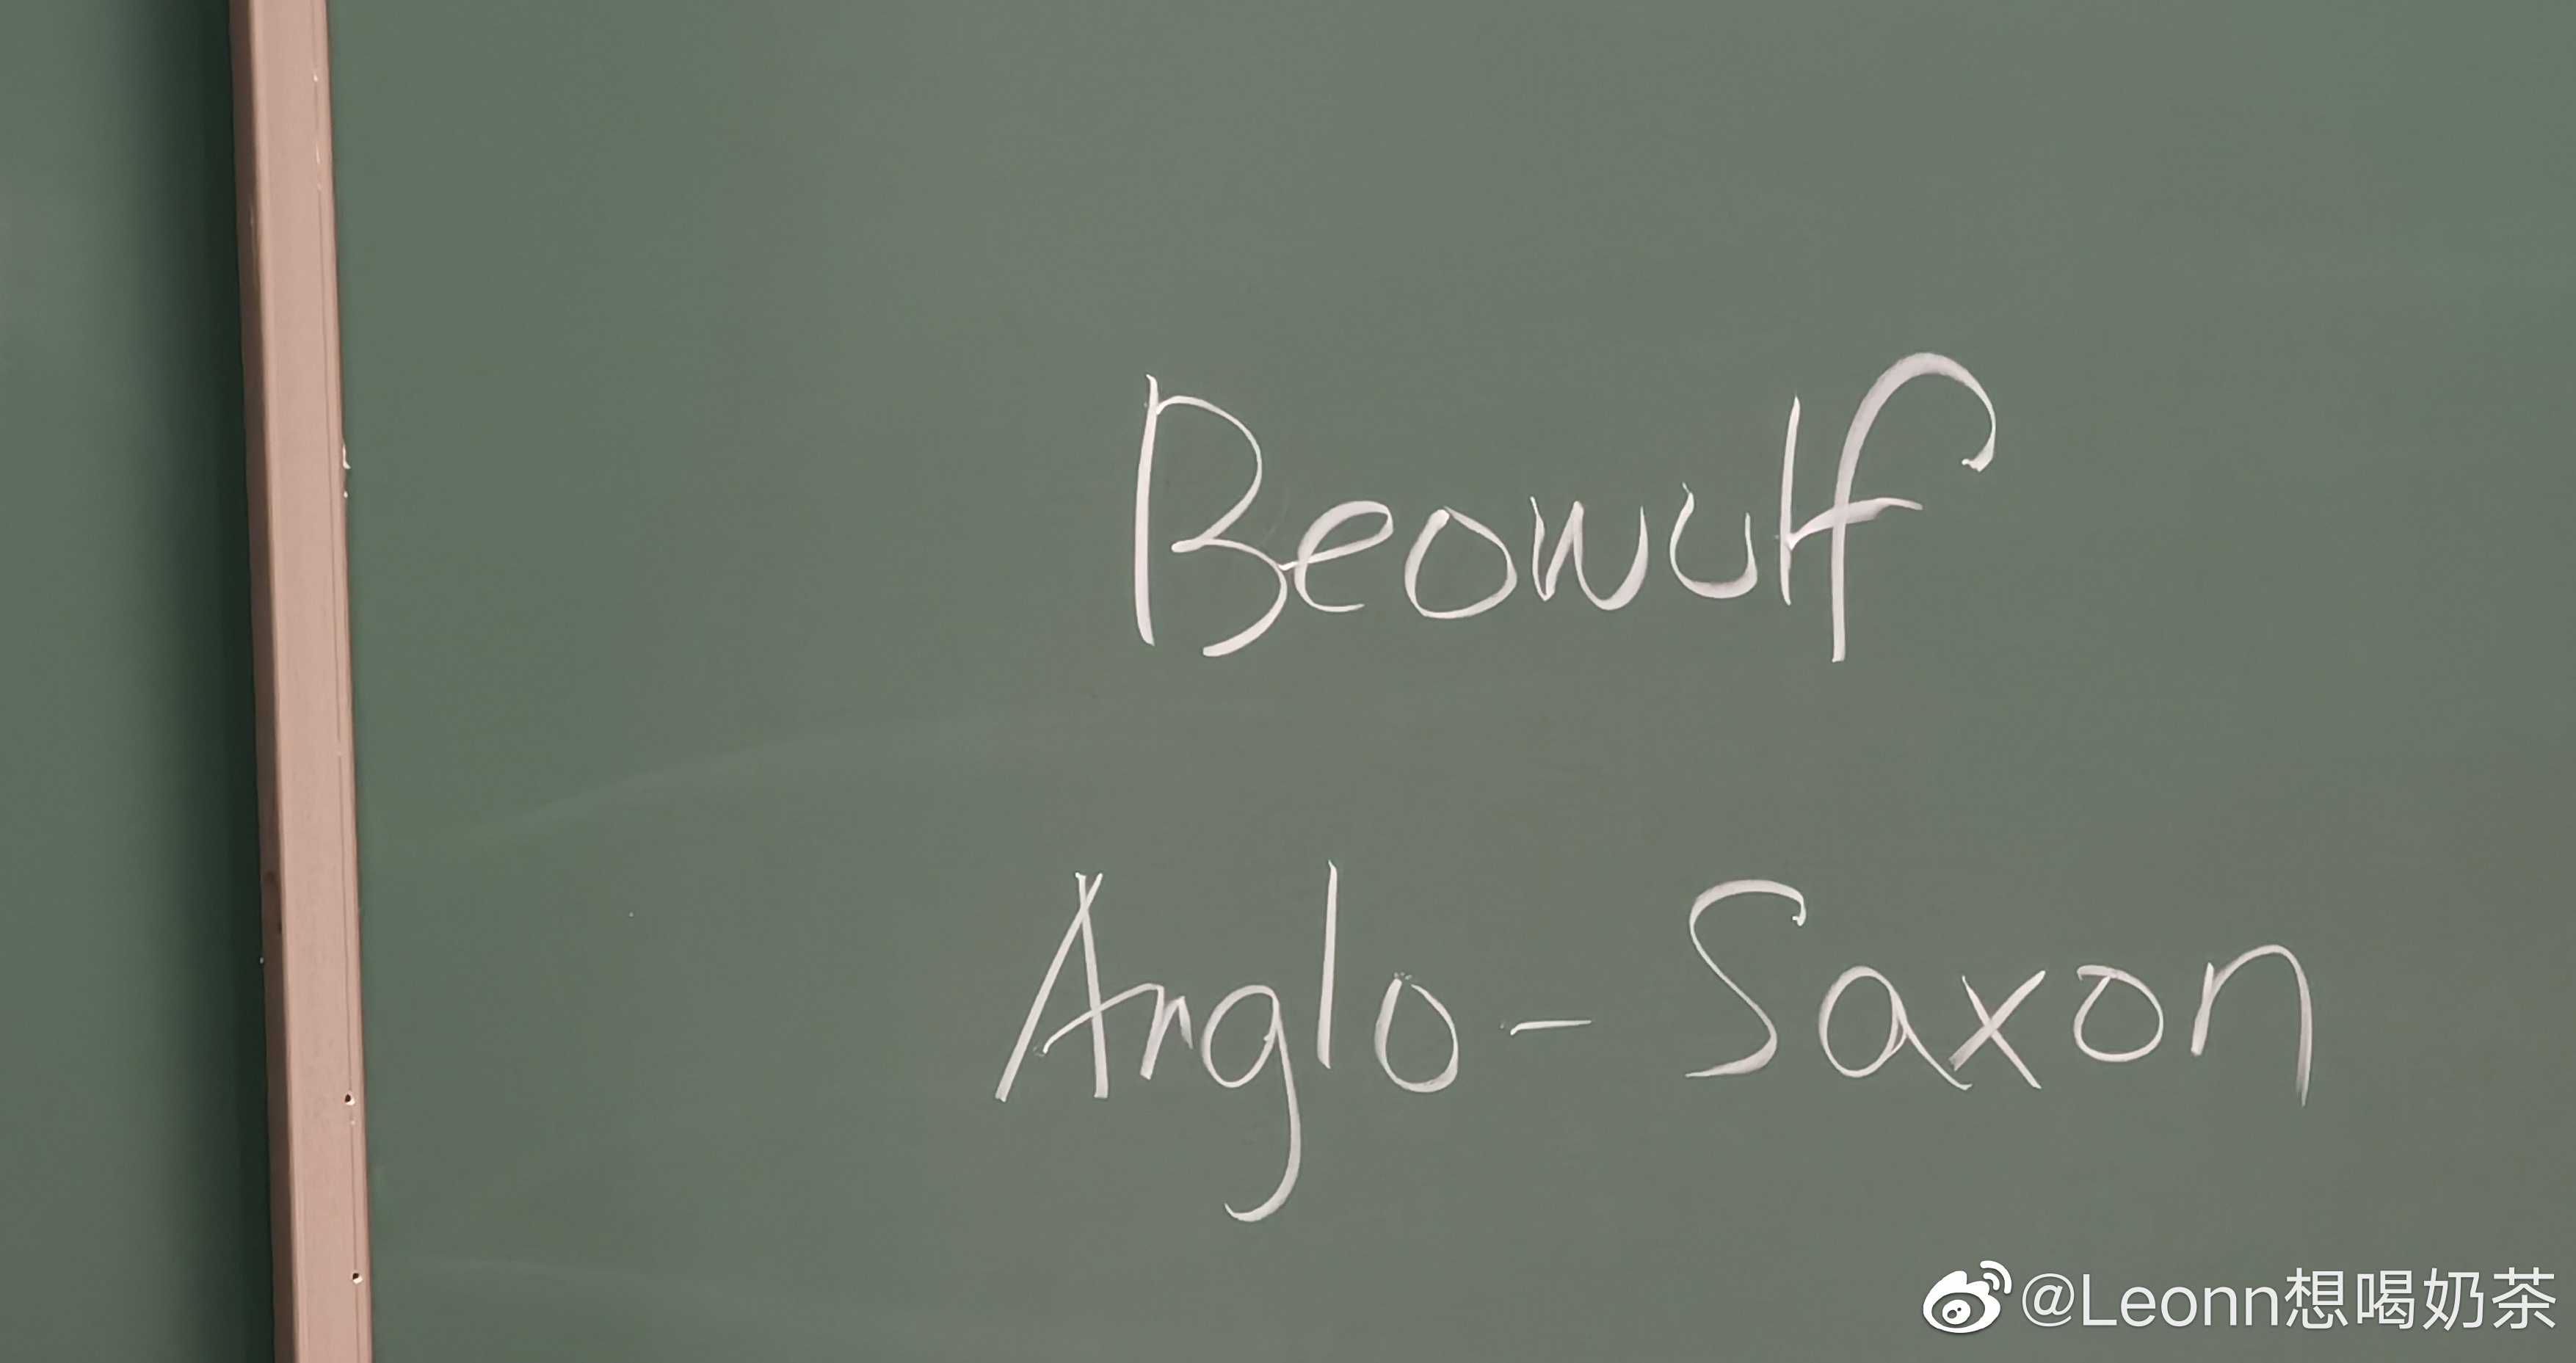 Beowulf
Anglo-Saxon
@Leonn想喝奶茶